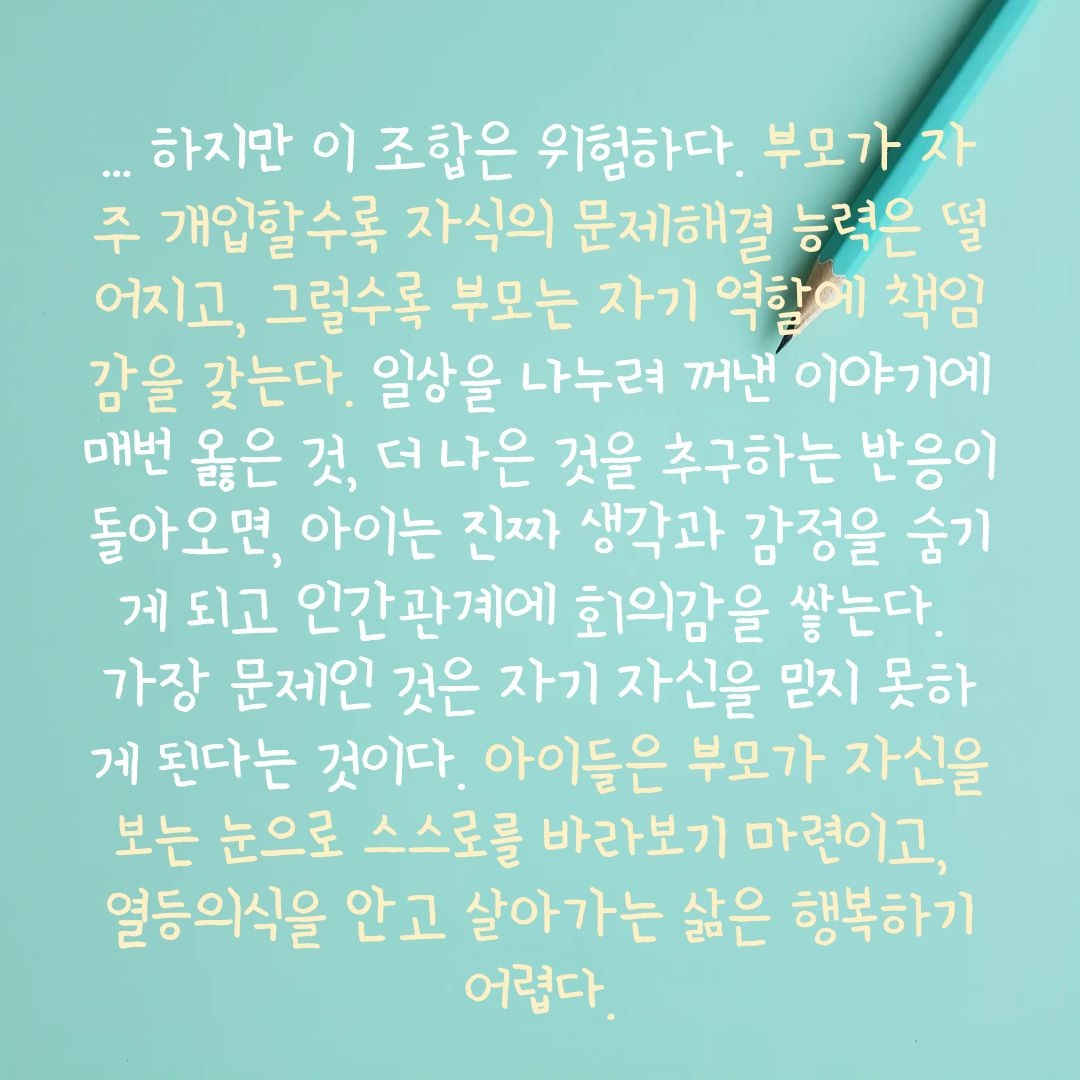 ... 하지만 이 조합은 위험하다. 부모가 자
주 개입할수록 자식의 문제해결 능력은 떨
어지고, 그럴수록 부모는 자기 역할에 책임
감을 갖는다. 일상을 나누려 꺼낸 이야기에
매번 옳은 것, 더 나은 것을 추구하는 반응이
돌아오면, 아이는 진짜 생각과 감정을 숨기
게 되고 인간관계에 회의감을 쌓는다.
가장 문제인 것은 자기 자신을 믿지 못하
게 된다는 것이다. 아이들은 부모가 자신을
보는 눈으로 스스로를 바라보기 마련이고,
열등의식을 안고 살아가는 삶은 행복하기
어렵다.